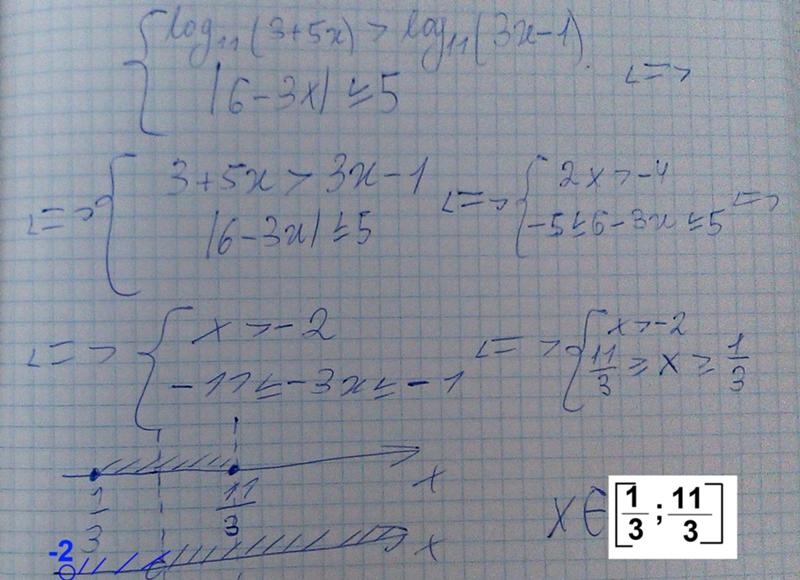 { log₁₁(3+5x) > log₁₁(3x-1).
|6-3x| ≤ 5 <=>
<=> { 3+5x > 3x-1
|6-3x| ≤ 5
<=> { 2x > -4
-5 ≤ 6-3x ≤ 5 <=>
<=> { x > -2
-11 ≤ -3x ≤ -1
<=> { x > -2
11/3 ≥ x ≥ 1/3
1/3 11/3 x
-2 x
x ∈ [1/3 ; 11/3]